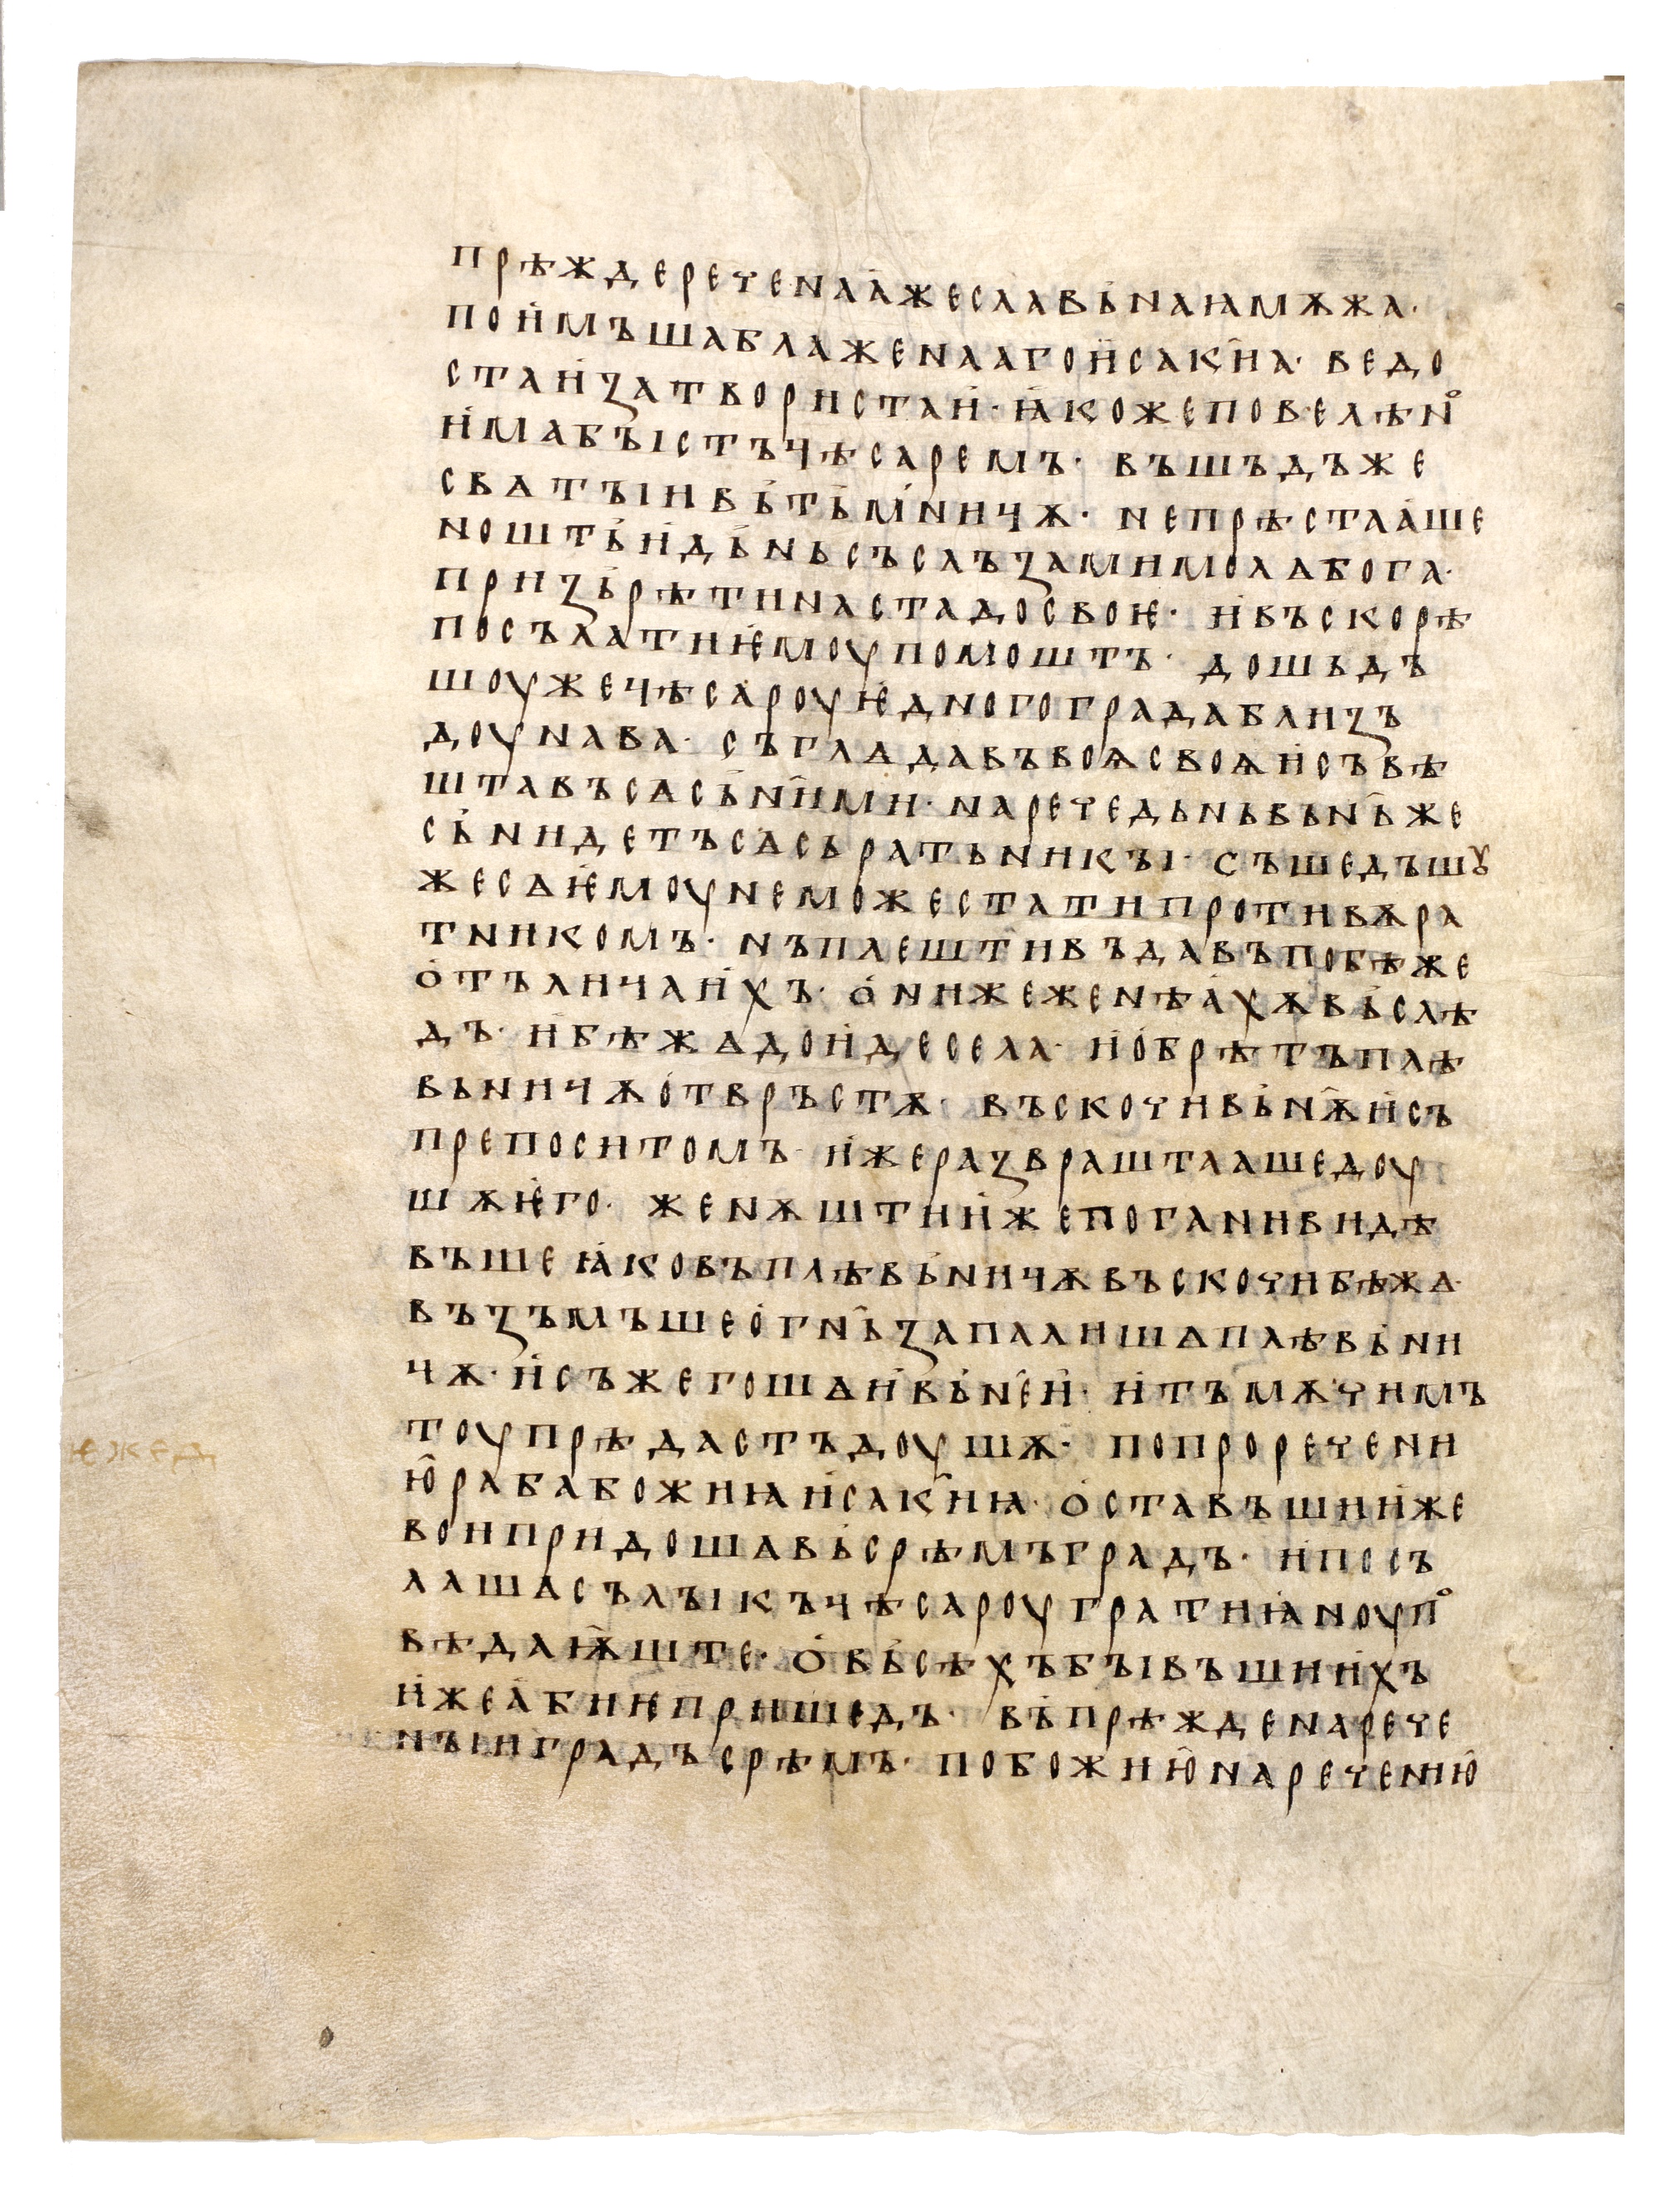 прѣждереченаꙗ҅жеславь҆наꙗмѫжа·
пои҅мъшаблаженаагои҅сакиꙗ҅· ведо
стаи҅затвористаи҅· ꙗ҅коженовелѣно
и҅мабꙑстъцѣсаремъ· въшъдъже
свѧтꙑивь҆тьм҆ницѫ· непрѣстаꙗ҅ше
ношть҆и҅дь҆ньсъслъзамимолѧбога·
призь҆рѣтинастадосвоѥ· и҅въскорѣ
посълатиѥ҅моупомошть· дошьдъ
шоужецѣсароуѥ҅дногоградаблизъ
доунава· съглѧдавъвоѩсвоѩи҅съвѣ
штавъсѧсь҆ними· наречедьньвьн҄ьже
сь҆нидетъсѧсьратьникꙑ· съшедъшꙋ
жесѧѥ҅моунеможестатипротивѫра
тникомъ· нъплештивъдавъпобѣже
о҅тълицаи҅хъ· о҅нижеженѣа҅хѫвь҆слѣ
дъ· и҅бѣжѧдои҅десела· и҅о҅брѣтъплѣ
вьницѫо҅твръстѫ· въскочивь҆н҄ѫи҅съ
препоситомъ· и҅жеразвраштаашедоу
шѫѥ҅го· женѫштии҅жепоганивидѣ
въшеꙗ҅ковъплѣвь҆ницѫвъскочибѣжѧ·
възъмъшео҅гн҄ьзапалишѧплѣвь҆ни
цѫ· и҅съжегошѧи҅вь҆н҄еи҅· и҅тъмѫчимъ
тоупрѣдастъдоушѫ· попроречени
ю҅рабабожиꙗи҅сакиꙗ· о҅ставъшии҅же
воипридошѧвь҆срѣмъградъ· и҅посъ
лашѧсълꙑкъцѣсароугратиꙗ҅ноупо
вѣдаѭште· о҅вь҆сѣхъбꙑвъшии҅хъ
и҅жеа҅биѥпришедъ· въ҆прѣжденарече
нꙑиградъсрѣмъ· побожию҅наречению҅